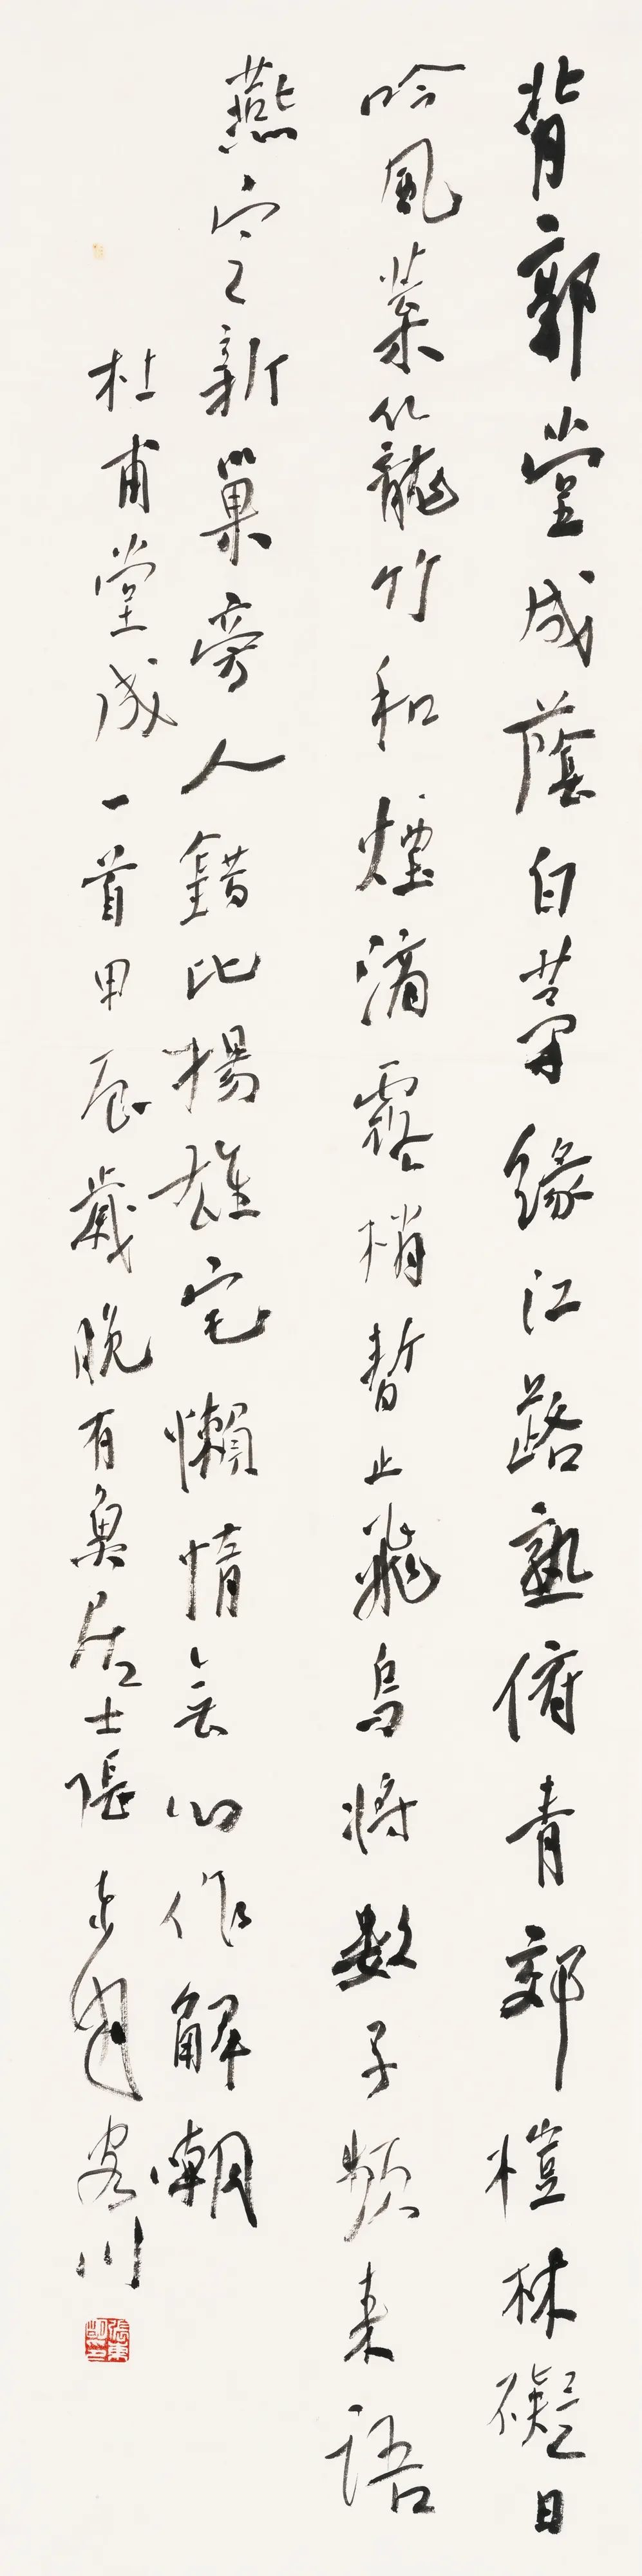 背郭堂成蔭白茅緣江路熟俯青郊榿林礙日
吟風葉籠竹和煙滴露梢暫止飛烏將數子頻來語
燕定新巢旁人錯比揚雄宅懶惰無心作解嘲
杜甫堂成一首甲辰歲晚有居士張東明客川
張東明印